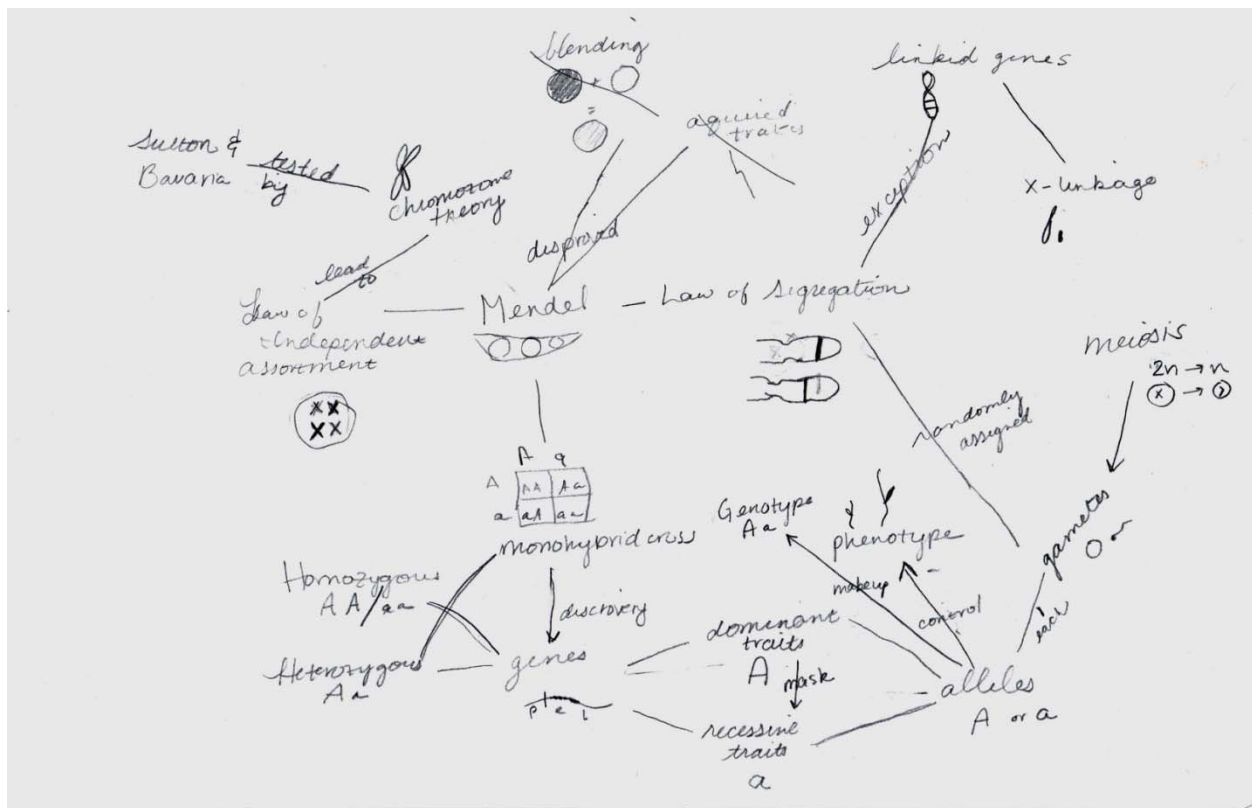 blending
+
=
linkid genes
aquired
traits
Sutton &
Bavaria
tested
by
chromozone
theory
exception
x-linkage
disproved
lead
to
Law of
Independent
assortment
Mendel
Law of Segregation
meiosis
2n → n
x →
x x
x x
randomly
assigned
A a
A AA Aa
a aA aa
monohybrid cross
Genotype
Aa
phenotype
gametes
O
Homozygous
AA/aa
discovery
makeup
control
each
dominant
traits
A mask
Heterozygous
Aa
genes
alleles
A or a
recessine
traits
a